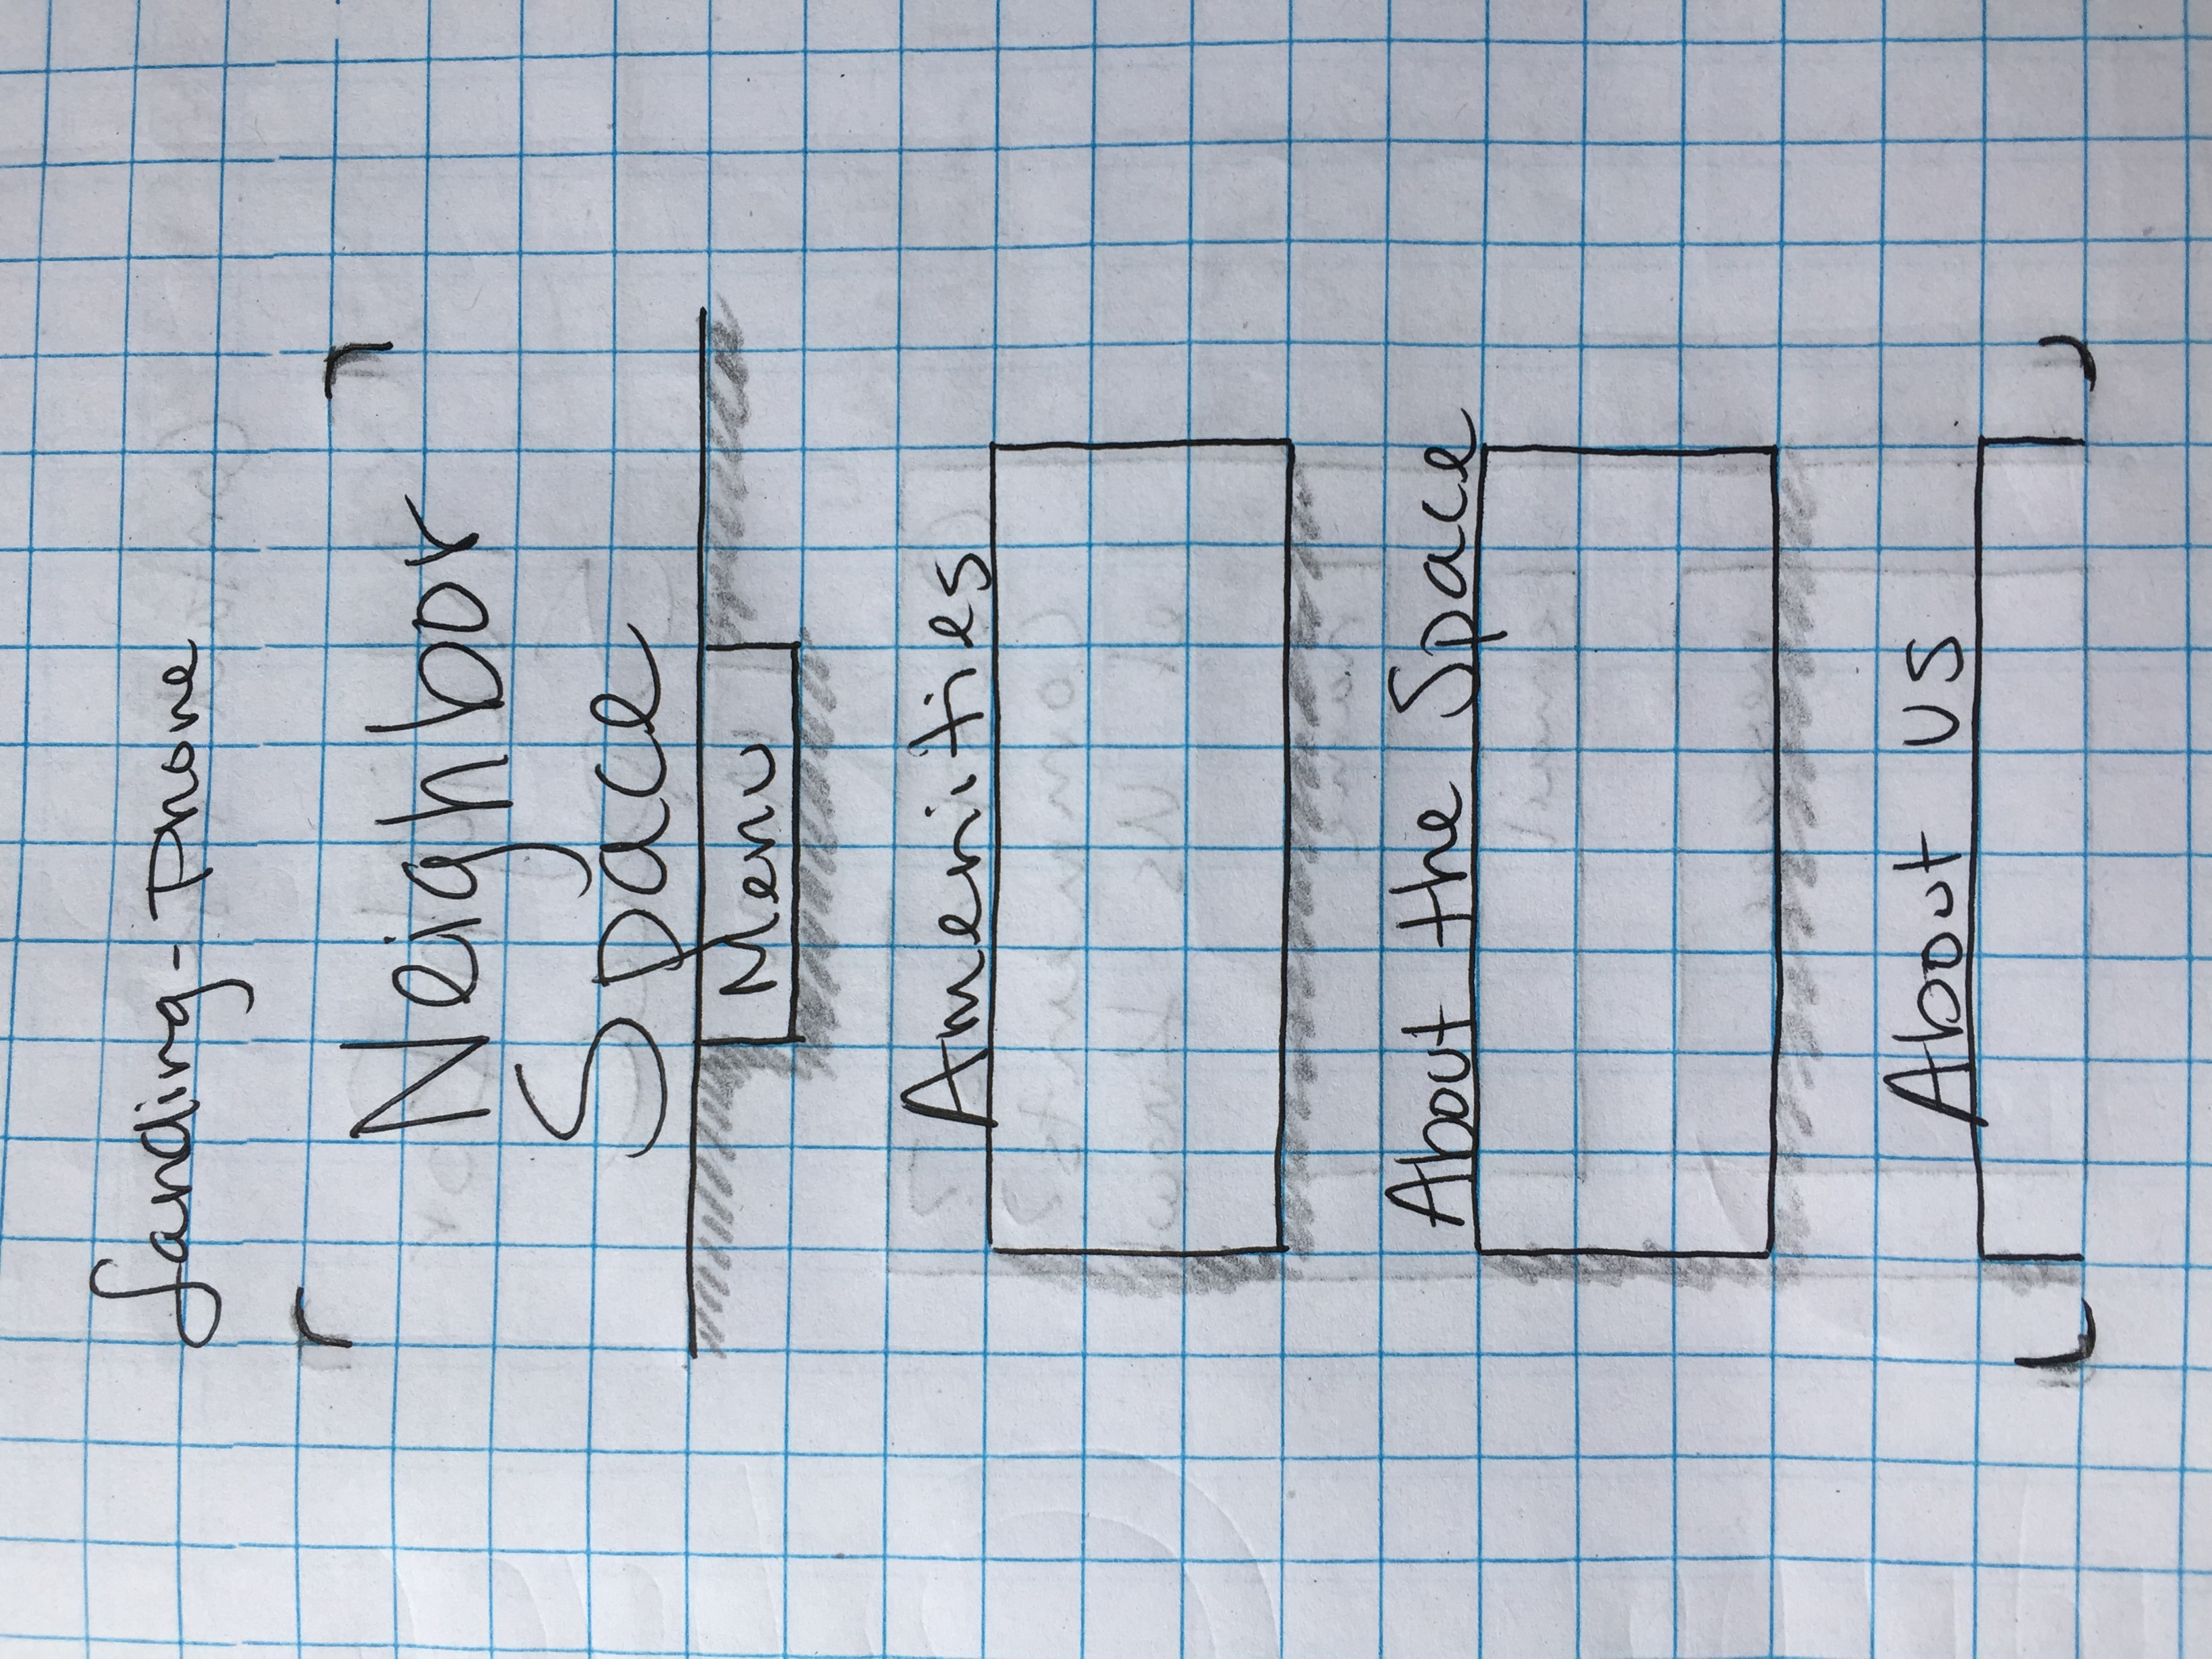 Landing - Phone
Neighbor
Space
Menu
Amenities
About the Space
About us